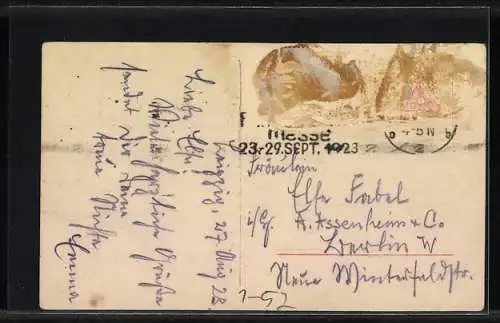 Leipzig, 27 Aug 23.
Liebe Else!
herzliche Grüße
sendet Dir Deine
Emma
Messe
23.-29. SEPT. 1923
4-5 N
Fräulein
Else Fabel
A. Assenheim & Co.
Berlin W
Neue Winterfeldtstr.
1-52